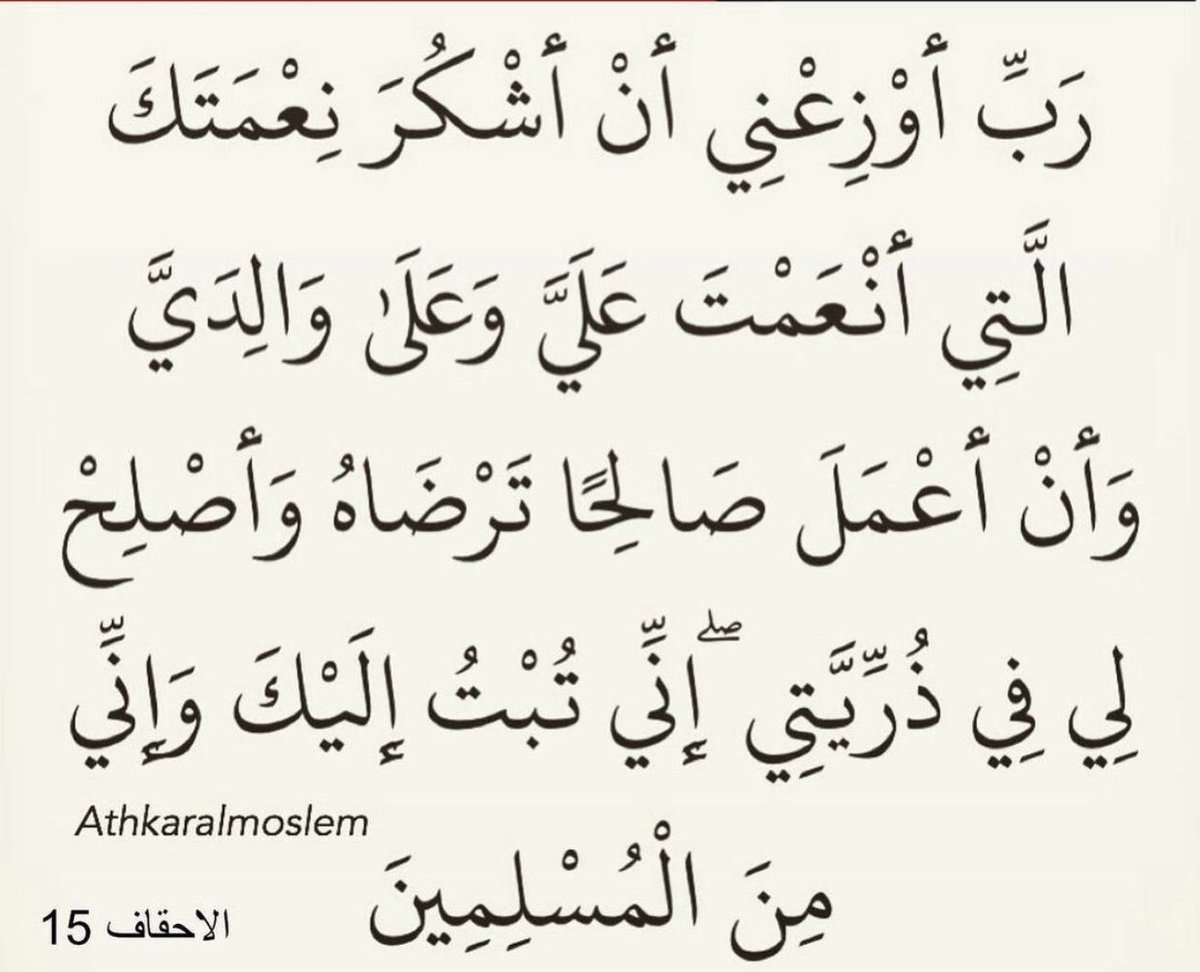 رَبِّ أَوْزِعْنِي أَنْ أَشْكُرَ نِعْمَتَكَ
الَّتِي أَنْعَمْتَ عَلَيَّ وَعَلَىٰ وَالِدَيَّ
وَأَنْ أَعْمَلَ صَالِحًا تَرْضَاهُ وَأَصْلِحْ
لِي فِي ذُرِّيَّتِي ۖ إِنِّي تُبْتُ إِلَيْكَ وَإِنِّي
Athkaralmoslem
مِنَ الْمُسْلِمِينَ
الاحقاف 15